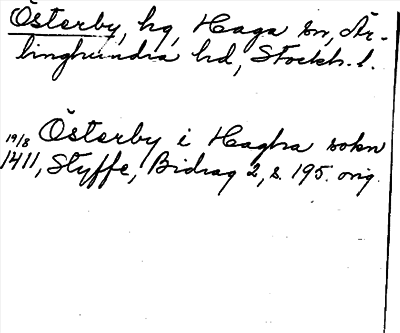 Österby, hg, Haga sn, Är-
linghundra hd, Stockh. l.
19/8 Österby i Haghra sokn
1411, Styffe, Bidrag 2, s. 195. orig.